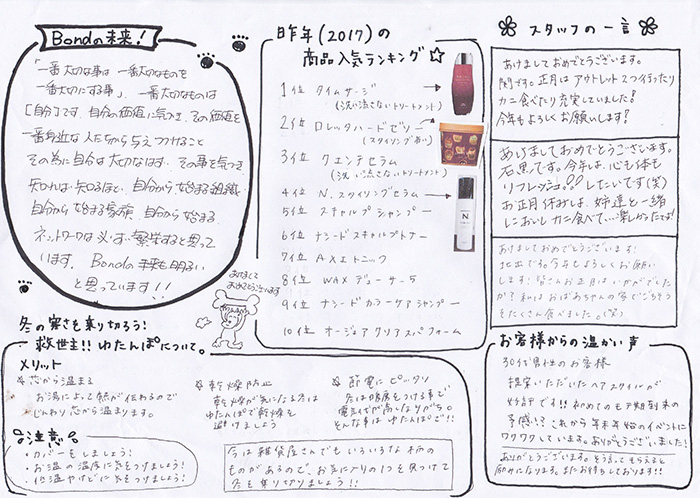 Bondの未来!
「一番大切な事は 一番大切なものを
一番大切にする事」、一番大切なものは
[自分]です。自分の価値に気づき、その価値を
一番身近な人たちから与えつづけること
その為に自分は大切なはず、その事を気づき、
知れば知るほど、自分から始まる組織
自分から始まる家族、自分から始まる
ネットワークは必ず繁栄すると思って
います。Bondの未来も明るい
と思っています!!
あけまして
おめでとうございます
昨年(2017)の
商品人気ランキング☆
1位 タイムサージ
(洗い流さないトリートメント)
2位 ロレッタハードゼリー
(スタイリング剤)
3位 クエンテセラム
(洗い流さないトリートメント)
4位 N.スタイリングセラム
5位 スキャルプシャンプー
6位 ナシードスキャルプトナー
7位 AXEトニック
8位 WAXデューサー5
9位 ナシードカラーケアシャンプー
10位 オージュアクリアスパフォーム
スタッフの一言
あけましておめでとうございます。
関です。正月はアウトレット2つ行ったり
カニ食べたり充実していました!
今年もよろしくお願いします!
あけましておめでとうございます。
石黒です。今年は、心も体も
リフレッシュ!!したいです(笑)
お正月休みは、姉達と一緒
においしいカニ食べて…楽しかったです!
あけましておめでとうございます!
北出です。今年もよろしくお願い
します!皆さんお正月はいかがでした
か?私はおばあちゃんの家でごちそう
をたくさん食べました。(笑)
お客様からの温かい声
30代男性のお客様
提案いただいたヘアスタイルが
好評です!!初めてのモテ期到来の
予感!?これから年末年始のイベントに
ワクワクしています。ありがとうございました!
ありがとうございます。そう言ってもらえると
励みになります。またお待ちしております!!
冬の寒さを乗り切ろう!
救世主!!ゆたんぽについて。
メリット
芯から温まる
お湯によって熱が伝わるので
じんわり芯から温まります。
乾燥防止
乾燥が気になる方は
ゆたんぽで乾燥を
避けましょう
節電にピッタリ
冬は暖房をつける事で
電気代が高くなりがち。
そんな事はゆたんぽで!!
注意
・カバーをしましょう!
・お湯の温度に気をつけましょう!
・低温やけどに気をつけましょう!
今は雑貨屋さんでもいろいろな柄の
ものがあるので、お気に入りの1つを見つけて
冬を乗り切りましょう!!